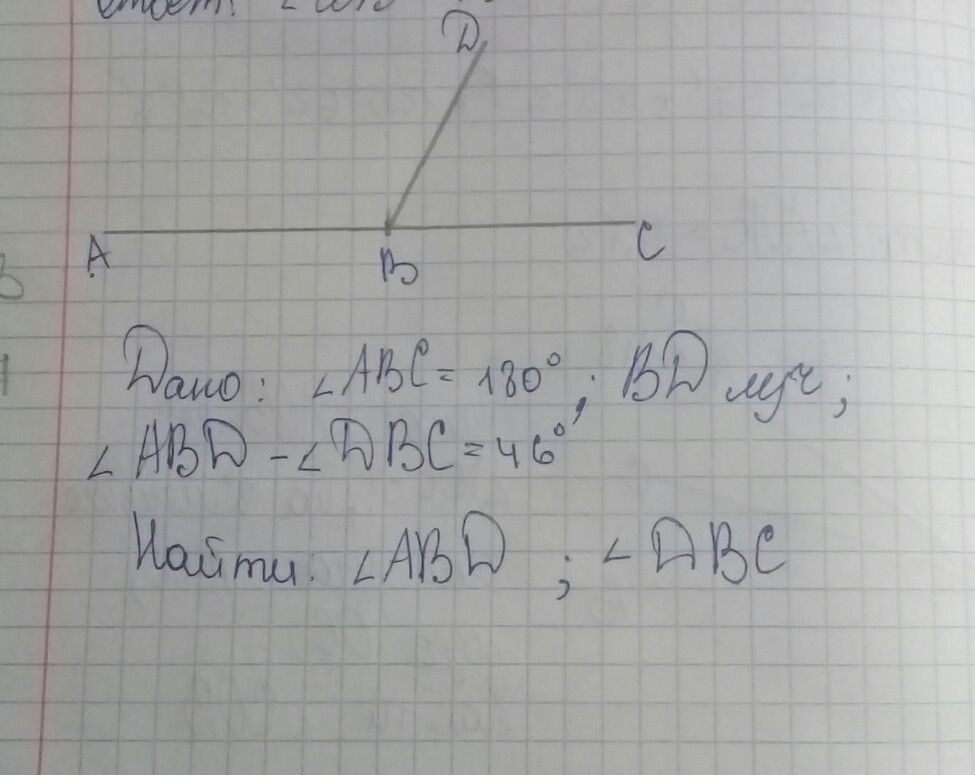 D
A
B
C
Дано: ∠ABC = 180°; BD луч;
∠ABD - ∠DBC = 46°
Найти: ∠ABD ; ∠DBC